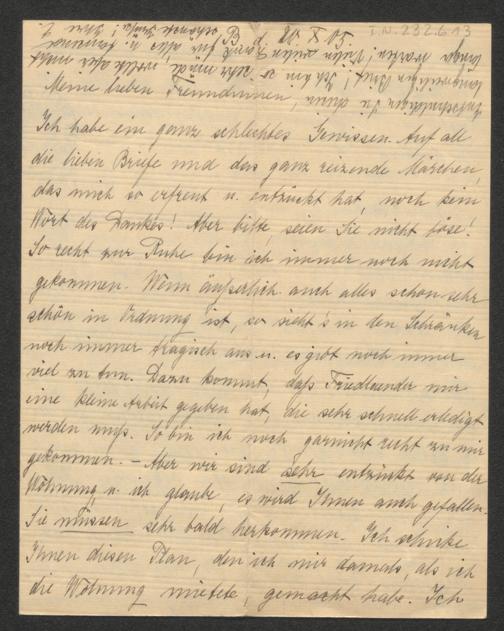 I.N. 232.613
30 X 08
Meine lieben Freundinnen,
Ich habe ein ganz schlechtes Gewissen. Auf all
die lieben Briefe und das ganz reizende Märchen,
das mich so erfreut u. entzückt hat, noch kein
Wort des Dankes! Aber bitte, seien Sie nicht böse!
So recht zur Ruhe bin ich immer noch nicht
gekommen. Wenn äußerlich auch alles schon sehr
schön in Ordnung ist, so sieht's in den Schränken
noch immer tragisch aus u. es gibt noch immer
viel zu tun. Dazu kommt, daß Friedlaender mir
eine kleine Arbeit gegeben hat, die sehr schnell erledigt
werden muß. So bin ich noch garnicht recht zu mir
gekommen. – Aber wir sind sehr entzückt von der
Wohnung u. ich glaube, es wird Ihnen auch gefallen.
Sie müssen sehr bald herkommen. Ich schicke
Ihnen diesen Plan, den ich mir damals, als ich
die Wohnung mietete, gemacht habe. Ich
Entschuldigen Sie diesen
langweiligen Brief! Ich bin so sehr müde, wollte aber nicht
länger warten! Vielen vielen Dank für alles u.